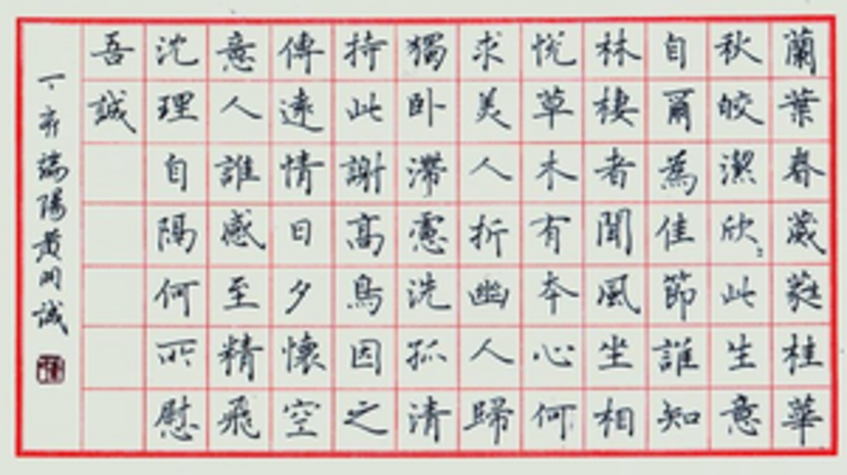 蘭葉春葳蕤桂華
秋皎潔欣〻此生意
自爾為佳節誰知
林棲者聞風坐相
悅草木有本心何
求美人折幽人歸
獨卧滯慮洗孤清
持此謝高鳥因之
傳遠情日夕懷空
意人誰感至精飛
沈理自隔何所慰
吾誠
丁亥端陽黃明誠